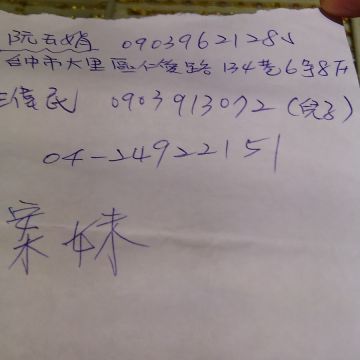 阮玉娟 0903962128
台中市大里區仁愛路134巷6號8F
偉民 0903913072 (兒子)
04-24922151
案妹